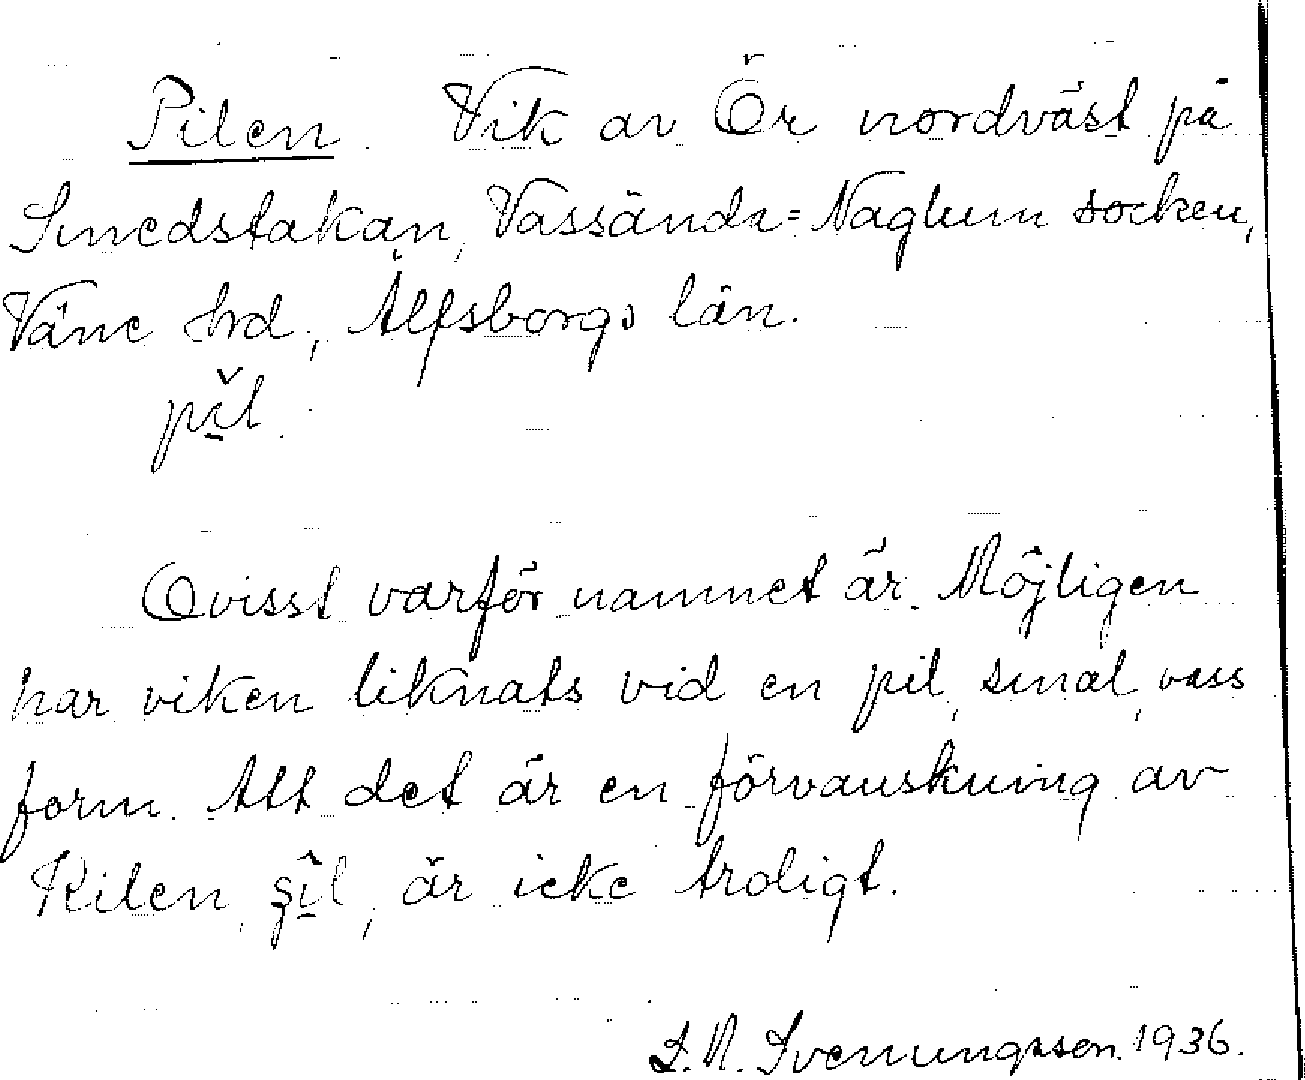 Pilen. Vik av Ör nordväst på
Smedstakan, Vassända=Naglum socken,
Väne hrd, Älfsborgs län.
pı̌l.
Ovisst varför namnet är. Möjligen
har viken liknats vid en pil, smal, vass
form. Att det är en förvanskning av
Kilen, är icke troligt.
Svenungsson. 1936.